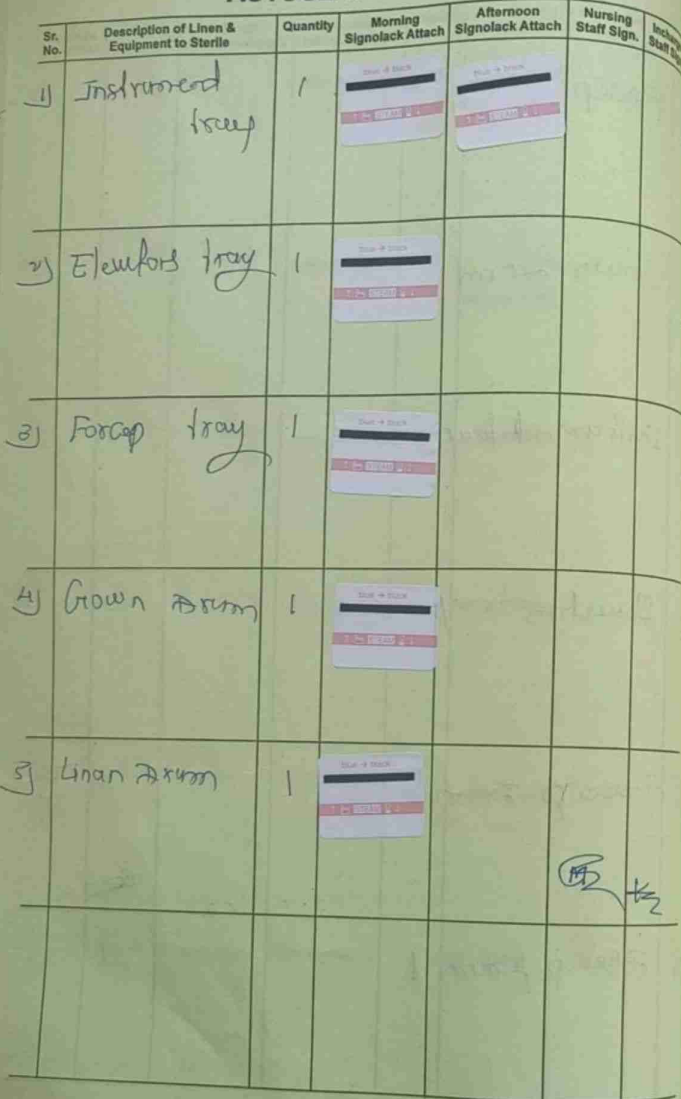 Sr. No.
Description of Linen & Equipment to Sterile
Quantity
Morning Signolack Attach
Afternoon Signolack Attach
Nursing Staff Sign.
Staff
1) Instrument 1
tray
blue → black
STEAM
blue → black
STEAM
2) tray 1
blue → black
STEAM
3) Forcep tray 1
blue → black
STEAM
4) Gown Drum 1
blue → black
STEAM
5) Linan Drum 1
blue → black
STEAM